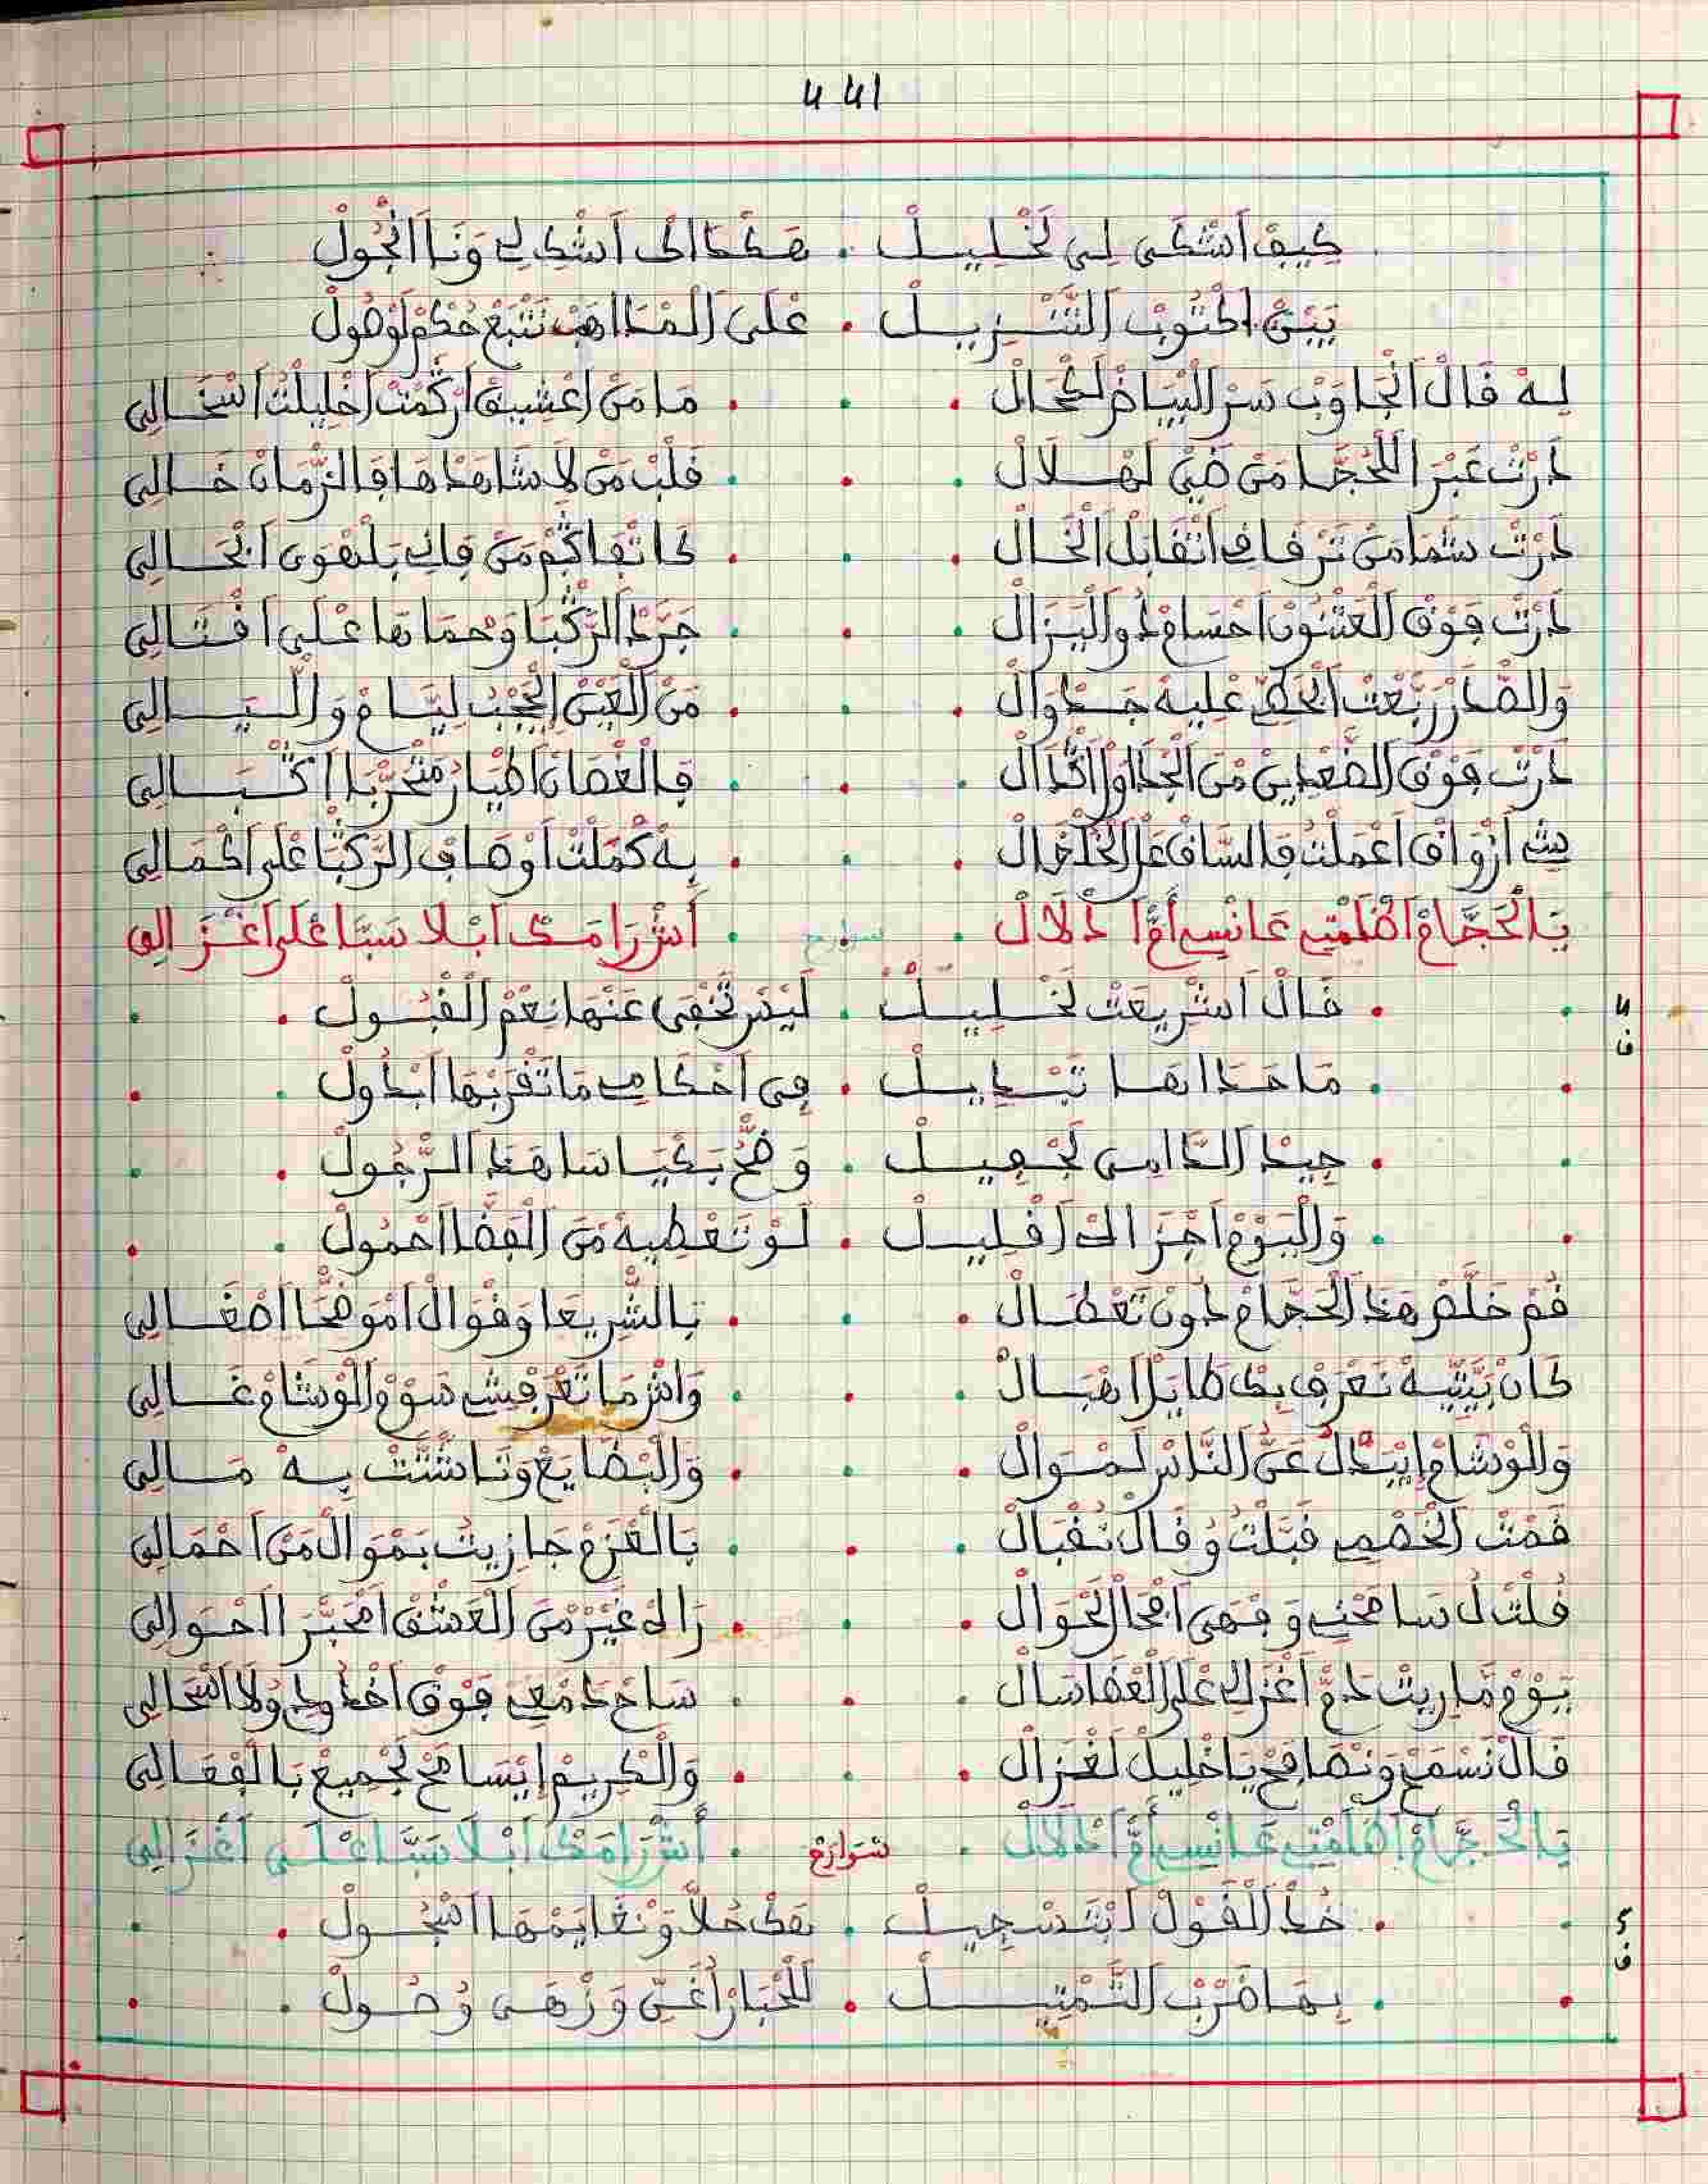 441
كيف اشكى لي لخليل . هكداك اشكالي ونا انجول
بين اكتوب التنزيل . على المداهب نتبع حكم لوصول
ليه قال انجاوب سر البياض لكحال . ما من اعشيق اركمت اخليلت اسخالي
درت عبر اللحجا من ضي لهلال . قلب من لا شاهدها فالزمان خالي
درت شما من ترقاق اتقابل الخال . كاتفاكم من قال بلهوى ابحالي
درت فوق العتنون احسام دو اليزال . جرد الركبا وحماها على اقتالي
والصدر ربعت الحكيم عليه جدوال . من العين الحجب ليام والليالي
درت فوق الضعدين من الجداول اكدال . فالغصان اطيار متحربا اكبالي
ميت ازواق اعملت فالساق عل الخلخال . به كملت اوصاف الركبا على اكمالي
يالحجام اظلمتي عانسي أم ادلال . أش رامك ابلا سبا على اغزالي
4
ف
قال اشريعت لخليل . ليس تخفى عنها نعم القبول
ما حداها تبديل . في احكامي ما تقربها ابدول
جيد الدامي لجفيل . وضح بكياسا هد الرجول
واليوم اجزاك اقليل . لو تعطيه من الفضا احمول
قم خلص هد الحجام دون تعطال . بالشريعا وقوال اموضحا اصغالي
كان بيتيه نعرف بك طايل اهبال . واش ما تعرفش سوم الوشام غالي
والوشام ايبدل عن الناس لموال . والبضايع ونا شتت به مالي
قمت الخصمي قبلت وقال تقبال . بالعزم جازيت بموال من احمالي
قلت ل سامحني وفهى امحا لحوال . راه غير من العشق امخبرا احوالي
يوم ماريت دم اغزالي على العضا سال . ساح دمعي فوق اخدودي ولا اسحالي
قال نسمح ونصافح يا خليل لغزال . والكريم ايسامح لجميع بالفعالي
يالحجام اظلمتي عانسي أم ادلال . سوارح . أش رامك ابلا سبا على اغزالي
5
ف
خد القول ابتسجيل . هك حلا ونغايمها اسجول
بها ضرب التمتيل . للخبار أغني وزهى وصول